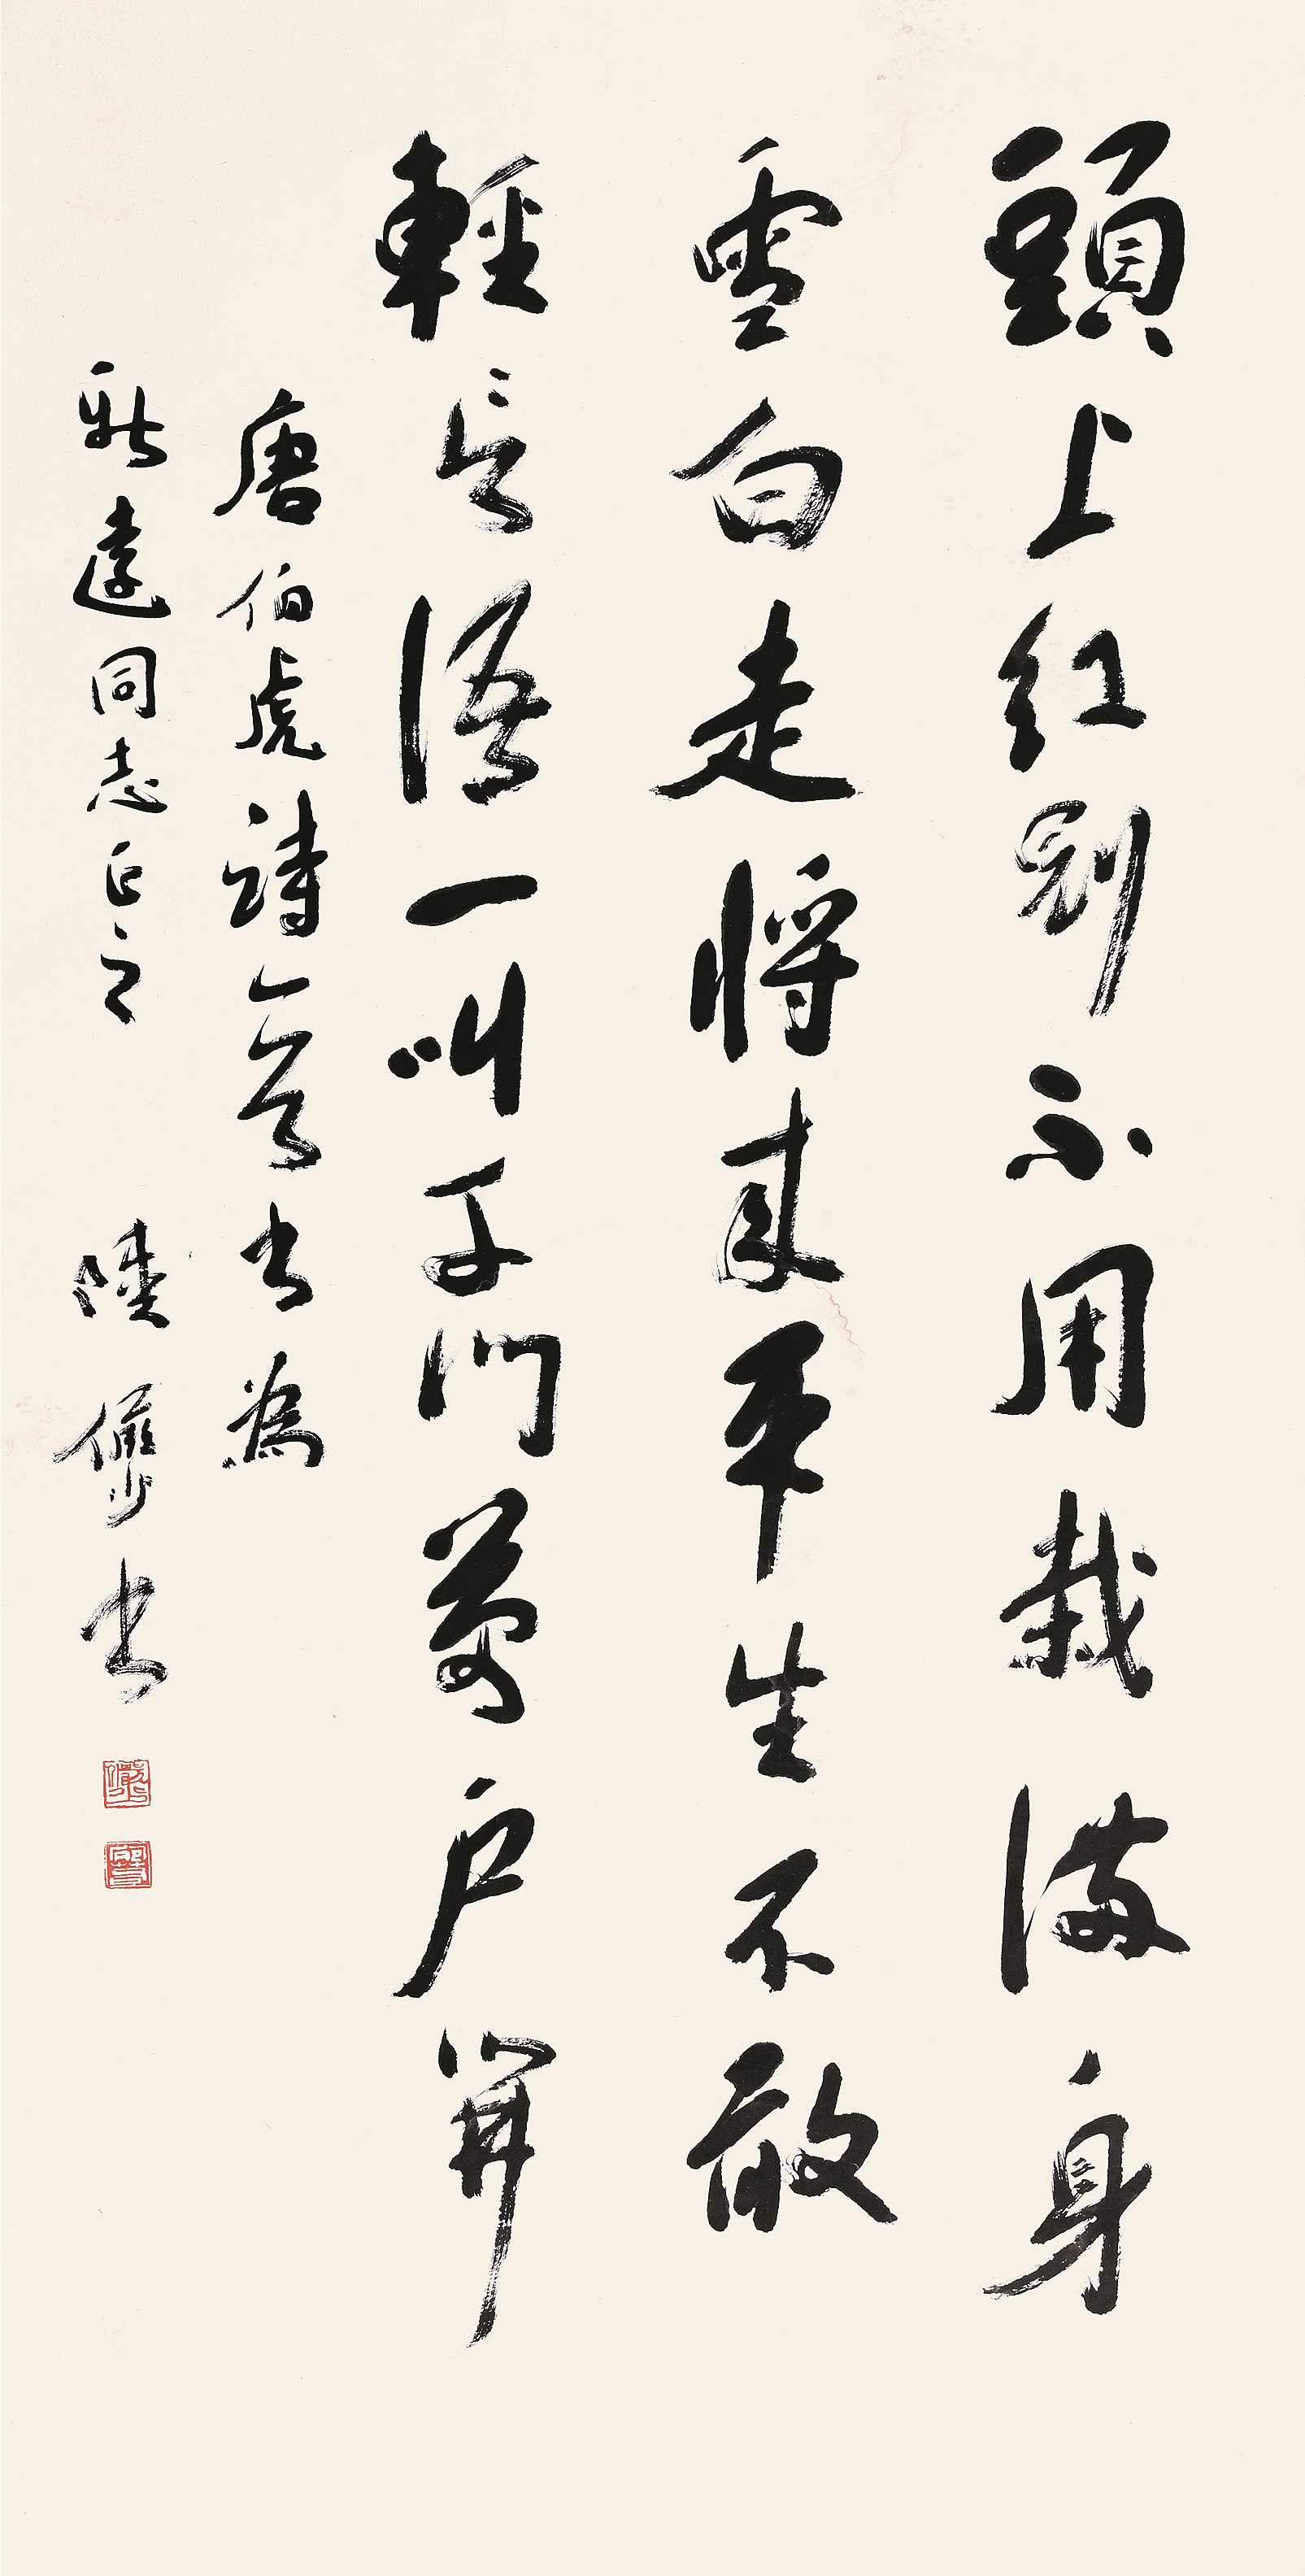 頭上紅冠不用栽滿身
雪白走將來平生不敢
輕言語一叫千門萬戶開
唐伯虎詩一首書為
新遠同志正之 陸儼少書